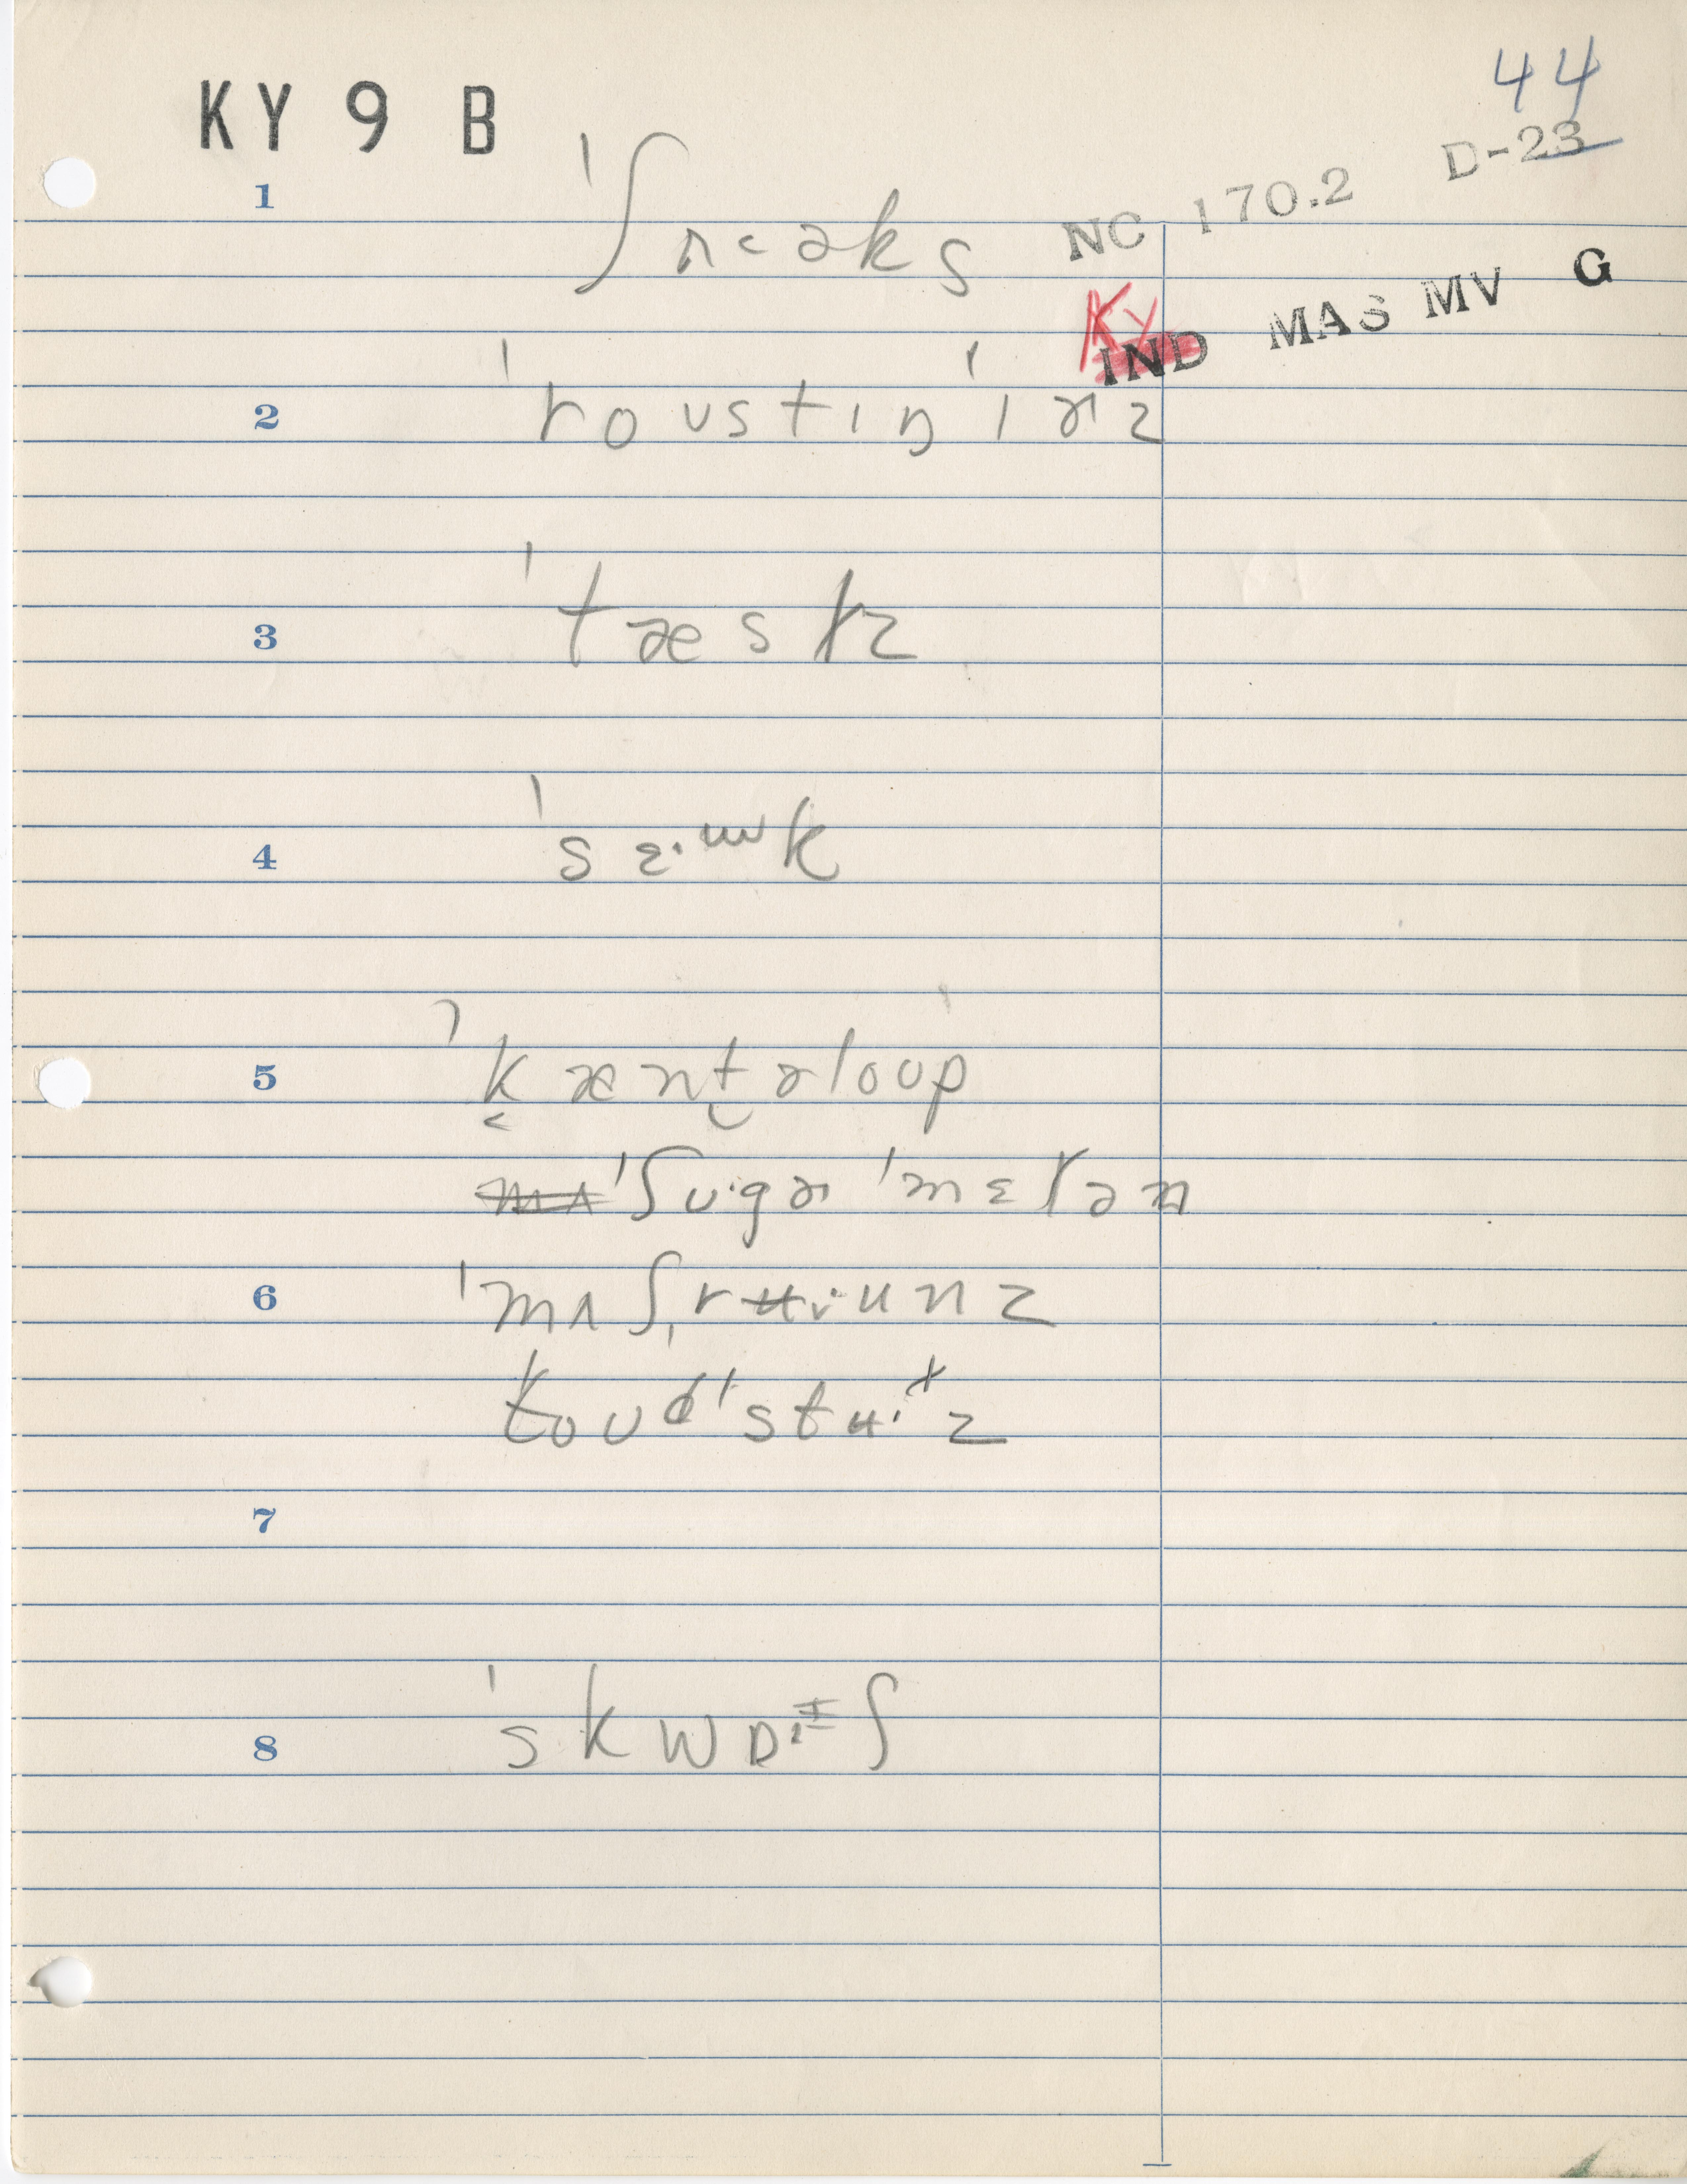 44
KY 9 B
D-23
NC 170.2
KY
IND MAS MV G
1 ˈʃʌcəks
2 ˈroustɪŋˈɪɚz
3 ˈtæsɫz
4 ˈsɛ·ɯk
5 ˈk̬æntɚˈloup
mʌ ˈʃu·gɚ ˈmɛɫən
6 ˈmʌʃˌrʉ·unz
toudˈstʉ·ɫz
7
8 ˈskwɒɪʃ